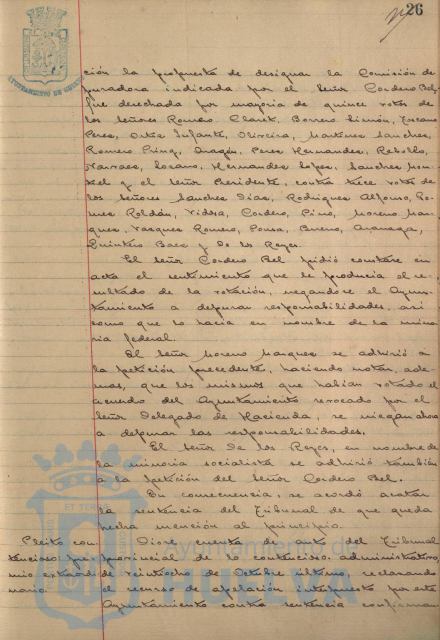 26
AYUNTAMIENTO DE HUELVA
ción la propuesta de designar la Comisión de-
puradora indicada por el Señor Cordero Bel,
fue desechada por mayoría de quince votos de
los señores Romeo Claret, Borrero Limón, Toscano
Perez, Ortiz Infante, Oliveira, Martinez Sanchez,
Romero Aragón, Perez Hernandez, Rebollo,
Narvaez, Lozano, Hernandez Lopez, Sanchez
y el Señor Presidente, contra trece votos de
los señores Sanchez Diaz, Rodriguez Alfonso, Go-
mez Roldán, Vidosa, Cordero, Pino, Moreno Mar-
quez, Vazquez Romero, Ponsa, Bueno,
Quintero Baez y De los Reyes.
El Señor Cordero Bel pidió constase en
acta el sentimiento que le producia el re-
sultado de la votación, negandose el Ayun-
tamiento a depurar responsabilidades, así
como que lo hacia en nombre de la mino-
ria federal.
El Señor Moreno Marquez se adhirió a
la petición precedente, haciendo notar, ade-
mas, que los mismos que habian votado el
acuerdo del Ayuntamiento revocado por el
Señor Delegado de Hacienda, se niegan ahora
a depurar las responsabilidades.
El Señor De los Reyes, en nombre de
la minoria socialista se adhirió también
a la petición del Señor Cordero Bel.
En consecuencia, se acordó acatar
la sentencia del Tribunal de que queda
hecha mención al principio.
Pleito con- Diose cuenta de auto del Tribunal
tencioso: provincial de lo contencioso-administrativo,
de veintiocho de Octubre último
el recurso de apelación interpuesto por este
Ayuntamiento contra sentencia
Ayuntamiento de
HUELVA